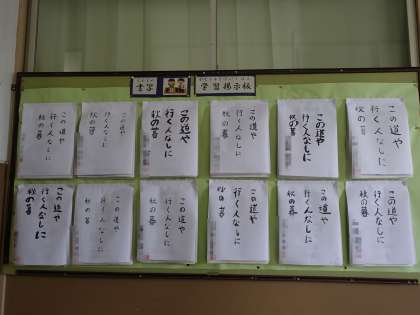 書写
学習掲示板
この道や
行く人なしに
秋の暮
この道や
行く人なしに
秋の暮
この道や
行く人なしに
秋の暮
この道や
行く人なしに
秋の暮
この道や
行く人なしに
秋の暮
この道や
行く人なしに
秋の暮
この道や
行く人なしに
秋の暮
この道や
行く人なしに
秋の暮
この道や
行く人なしに
秋の暮
この道や
行く人なしに
秋の暮
この道や
行く人なしに
秋の暮
この道や
行く人なしに
秋の暮